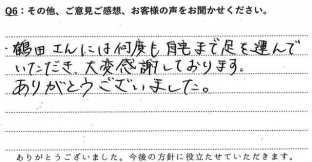 Q6：その他、ご意見ご感想、お客様の声をお聞かせください。
・鶴田さんには何度も自宅まで足を運んで
いただき、大変感謝しております。
ありがとうございました。
ありがとうございました。今後の方針に役立たせていただきます。